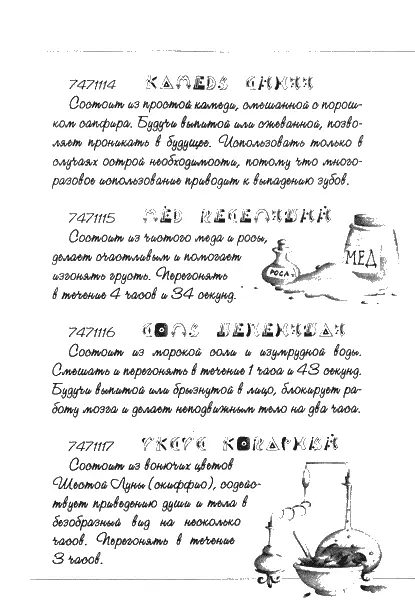 7471114 КАМЕДЬ СИНИЯ
Состоит из простой камеди, смешанной с порош-
ком сапфира. Будучи выпитой или сжеванной, позво-
ляет проникать в будущее. Использовать только в
случаях острой необходимости, потому что много-
разовое использование приводит к выпадению зубов.
7471115 МЁД ВЕСЕЛЯЩИЙ
Состоит из чистого меда и росы,
делает счастливым и помогает
изгонять грусть. Перегонять
в течение 4 часов и 34 секунд.
РОСА
МЕД
7471116 СОЛЬ ЦЕПЕНЯЩАЯ
Состоит из морской соли и изумрудной воды.
Смешать и перегонять в течение 1 часа и 43 секунд.
Будучи выпитой или брызнутой в лицо, блокирует ра-
боту мозга и делает неподвижным тело на два часа.
7471117 УКСУС КОВАРНЫЙ
Состоит из вонючих цветов
Шестой Луны (скиффио), содейс-
твует приведению души и тела в
безобразный вид на несколько
часов. Перегонять в течение
3 часов.